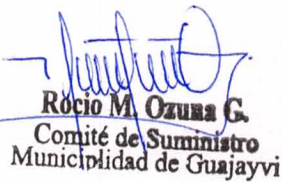 Rocio M. Ozuna G.
Comité de Suministro
Municiplidad de Guajayvi